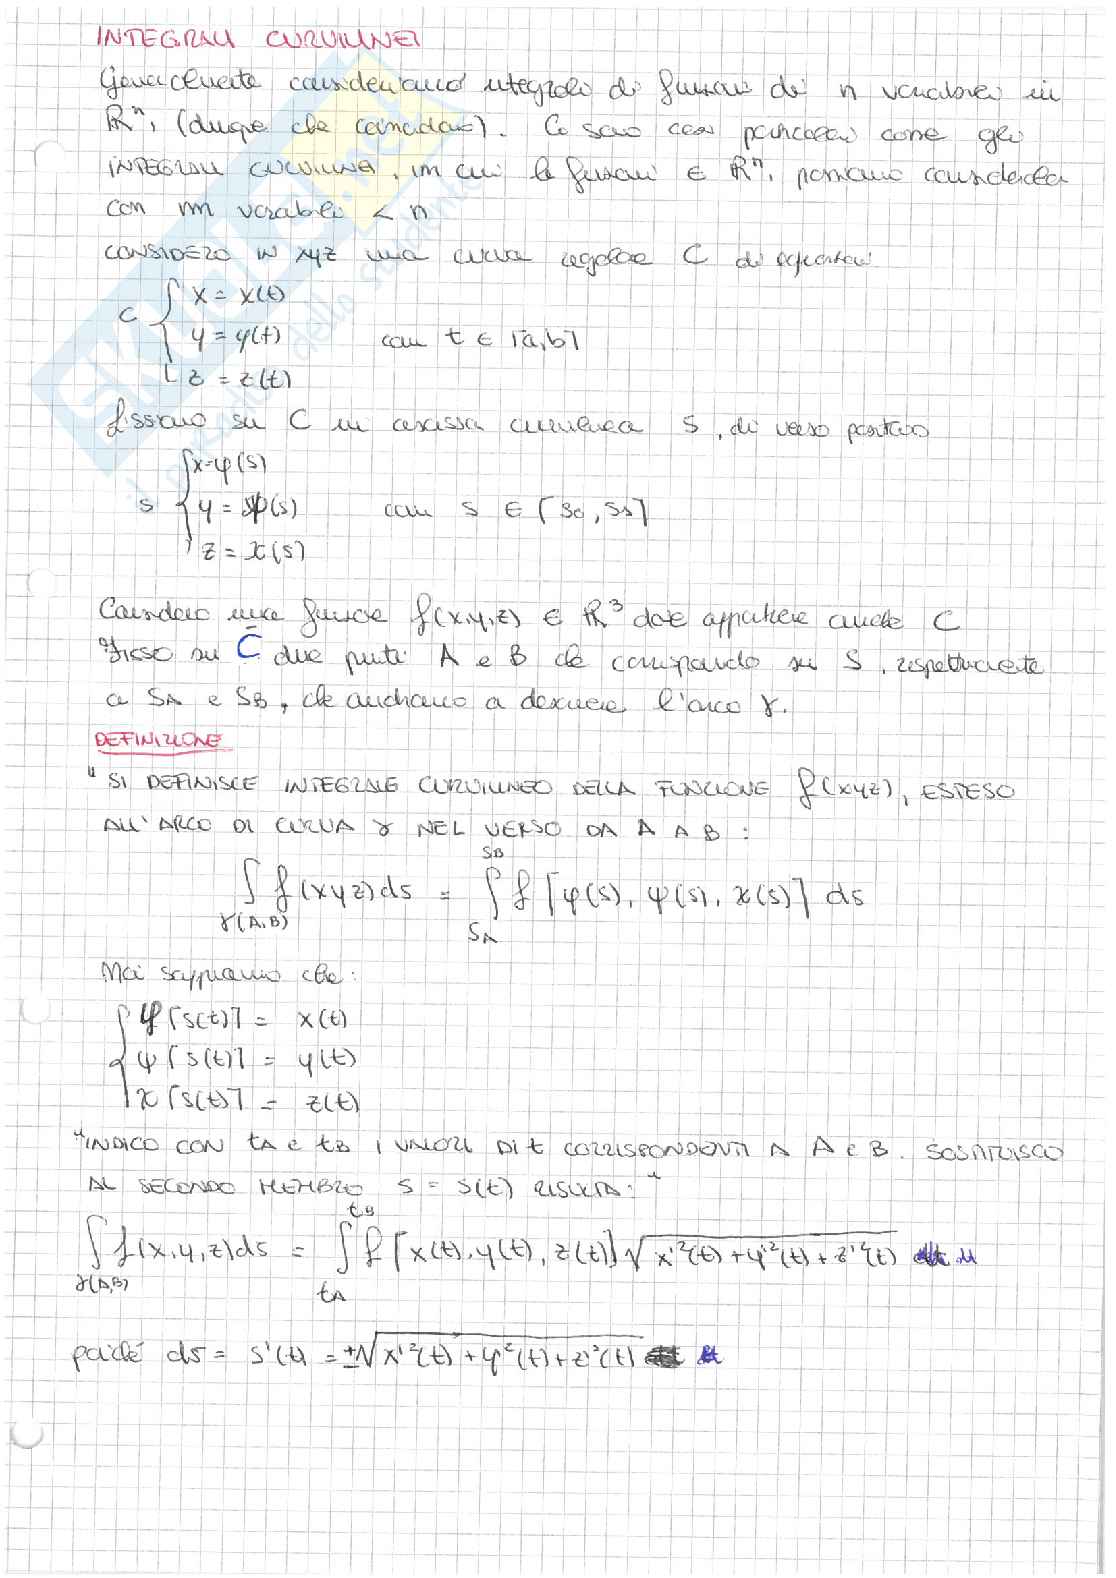 INTEGRALI CURVILINEI
Generalmente consideriamo integrali di funzioni di n variabili in
ℝⁿ, (dunque che coincidano). Ci sono casi particolari come gli
INTEGRALI CURVILINEI, in cui le funzioni ∈ ℝⁿ, possiamo considerarle
con m variabili < n
CONSIDERO IN xyz una curva regolare C di equazioni
C { x = x(t)
y = y(t) con t ∈ [a,b]
z = z(t)
fissiamo su C un ascissa curvilinea S, di verso positivo
S { x=φ(s)
y = ψ(s) con s ∈ [s₀, s₁]
z = χ(s)
Considero una funzione f(x,y,z) ∈ ℝ³ dove appartiene anche C
Fisso su C due punti A e B che corrispondono su S, rispettivamente
a SA e SB, che andranno a descrivere l'arco γ.
DEFINIZIONE
"SI DEFINISCE INTEGRALE CURVILINEO DELLA FUNZIONE f(xyz), ESTESO
ALL'ARCO DI CURVA γ NEL VERSO DA A A B :
∫γ(A,B) f(xyz)ds = ∫_SA^SB f [φ(s), ψ(s), χ(s)] ds
Noi sappiamo che:
{ φ[s(t)] = x(t)
ψ[s(t)] = y(t)
χ[s(t)] = z(t)
"INDICO CON tA e tB I VALORI DI t CORRISPONDENTI A A e B. SOSTITUISCO
AL SECONDO MEMBRO S = S(t) RISULTA: "
∫γ(A,B) f(x,y,z)ds = ∫_tA^tB f [x(t), y(t), z(t)] √x'²(t) + y'²(t) + z'²(t)
poiché ds = s'(t) = ±√x'²(t) + y'²(t) + z'²(t) dt